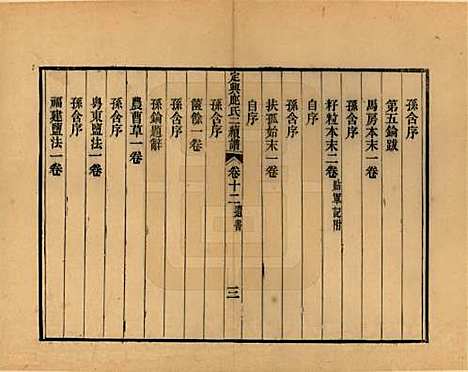 孫含序
第五鑰跋
馬房本末一卷
孫含序
籽粒本末二卷 貼軍記附
自序
孫含序
扶孤始末一卷
自序
定興鹿氏二續譜 卷十二 遺書 三
孫含序
篋餘一卷
孫含序
孫鑰題辭
農酉草一卷
孫含序
粵東鹽法一卷
孫含序
福建鹽法一卷